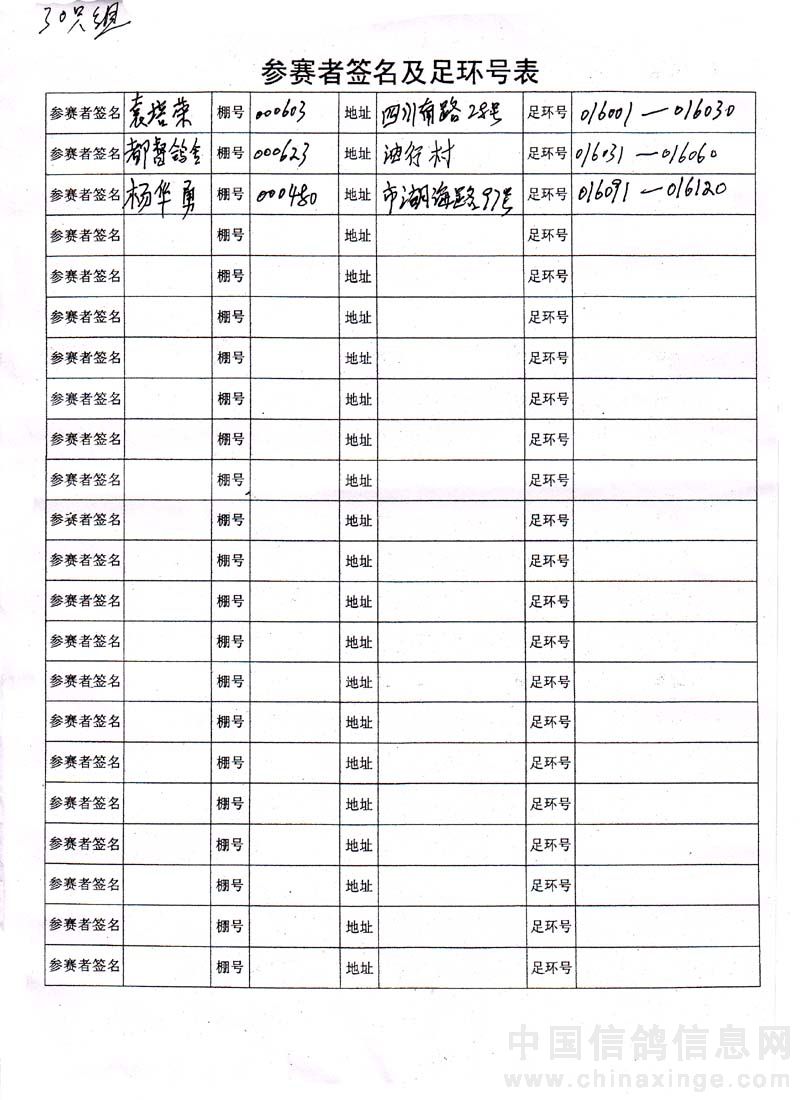 30只组
参赛者签名及足环号表
参赛者签名 袁培荣 棚号 000603 地址 四川南路28号 足环号 016001—016030
参赛者签名 都督鸽舍 棚号 000623 地址 油行村 足环号 016031—016060
参赛者签名 杨华勇 棚号 000480 地址 市湖海路97号 足环号 016091—016120
参赛者签名 棚号 地址 足环号
参赛者签名 棚号 地址 足环号
参赛者签名 棚号 地址 足环号
参赛者签名 棚号 地址 足环号
参赛者签名 棚号 地址 足环号
参赛者签名 棚号 地址 足环号
参赛者签名 棚号 地址 足环号
参赛者签名 棚号 地址 足环号
参赛者签名 棚号 地址 足环号
参赛者签名 棚号 地址 足环号
参赛者签名 棚号 地址 足环号
参赛者签名 棚号 地址 足环号
参赛者签名 棚号 地址 足环号
参赛者签名 棚号 地址 足环号
参赛者签名 棚号 地址 足环号
参赛者签名 棚号 地址 足环号
参赛者签名 棚号 地址 足环号
参赛者签名 棚号 地址 足环号
参赛者签名 棚号 地址 足环号
中国信鸽信息网
www.chinaxinge.com